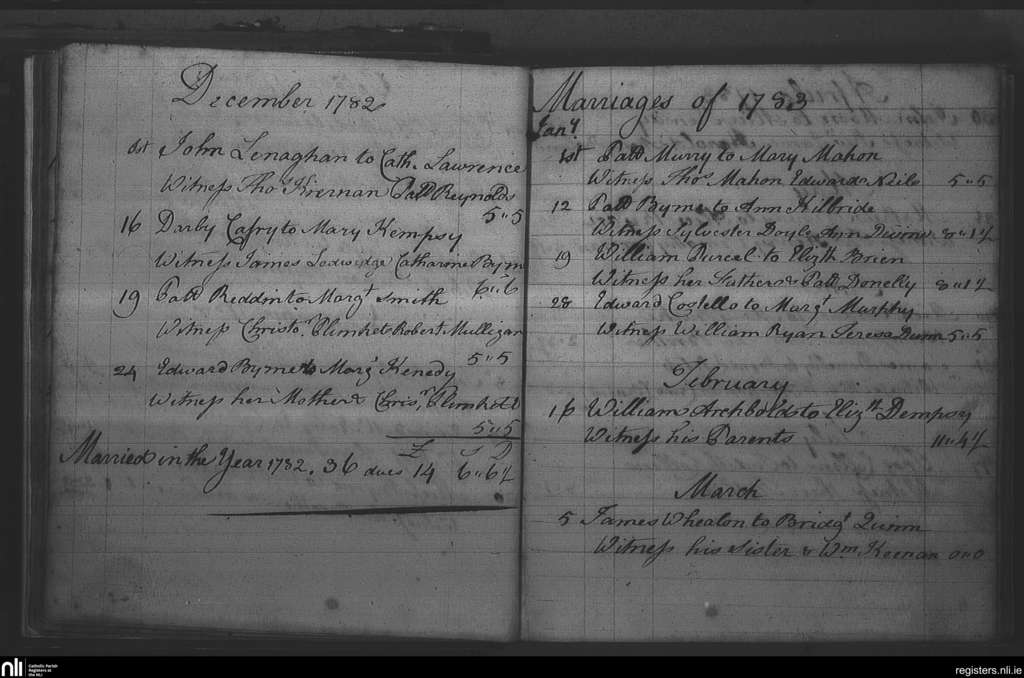 December 1782
1st John Lenaghan to Cath. Lawrence
Witness Thos. Kiernan Patt Reynolds
5"5
16 Darby Cafry to Mary Kempsy
Witness James Ledwidge Catharine Byrn
6"6
19 Patt Reddin to Margt Smith
Witness Christo. Plunket Robert Mulligan
5"5
24 Edward Byrne to Margt Kenedy
Witness her Mother & Chrisr. Plunket
5"5
£ S D
Married in the Year 1782. 36 dues 14 6"6½
Marriages of 1783
Jany
1st Patt Murry to Mary Mahon
Witness Thos Mahon Edward Neile 5"5
12 Patt Byrne to Ann Kilbride
Witness Sylvester Doyle Ann 8"1½
19 William Purcel to Elizth Brien
Witness her Father & Patt Donelly 8"1½
28 Edward Costello to Margt Murphy
Witness William Ryan Teresa Dunn 5"5
February
16 William Archbold to Elizth Dempsy
Witness his Parents 11"4½
March
5 James Whealon to Bridgt Quinn
Witness his sister & Wm. Keenan 0"0
nli
Catholic Parish
Registers at
the NLI
registers.nli.ie